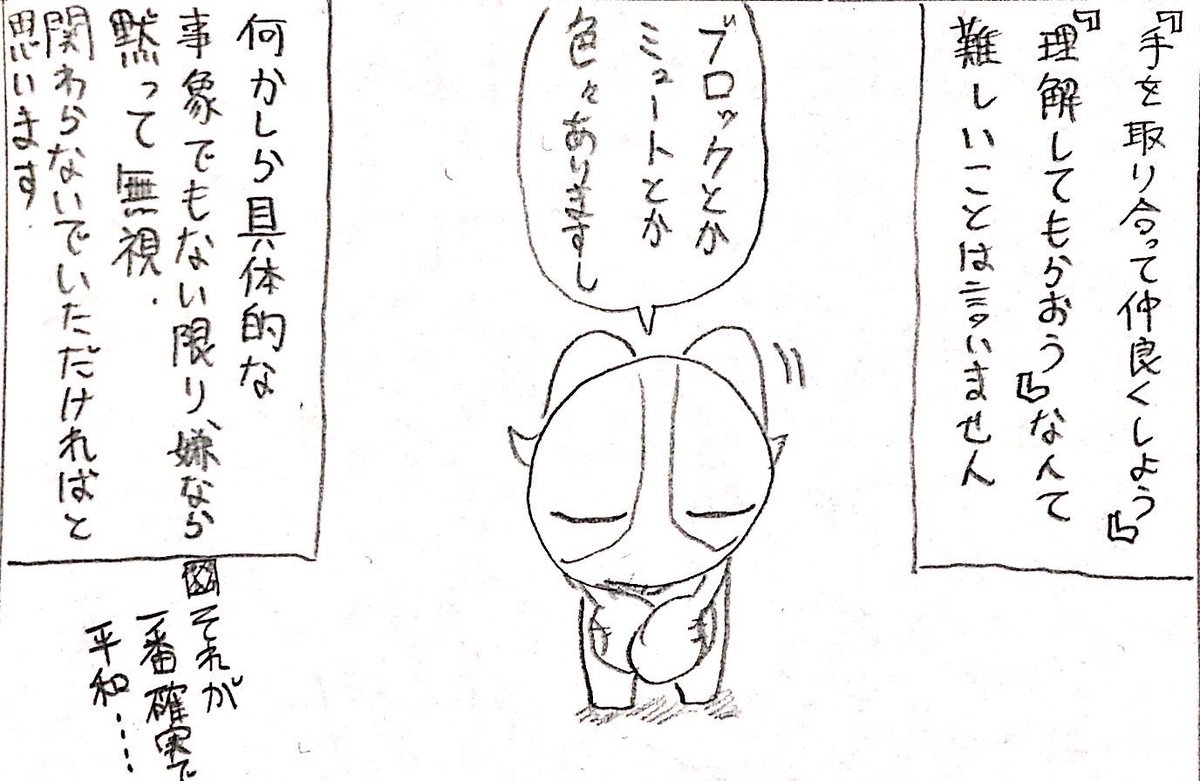 『手を取り合って仲良くしよう』
『理解してもらおう』なんて
難しいことは言いません
ブロックとか
ミュートとか
色々ありますし
何かしら具体的な
事象でもない限り、嫌なら
黙って無視.
関わらないでいただければと
思います.
それが
一番確実で
平和……